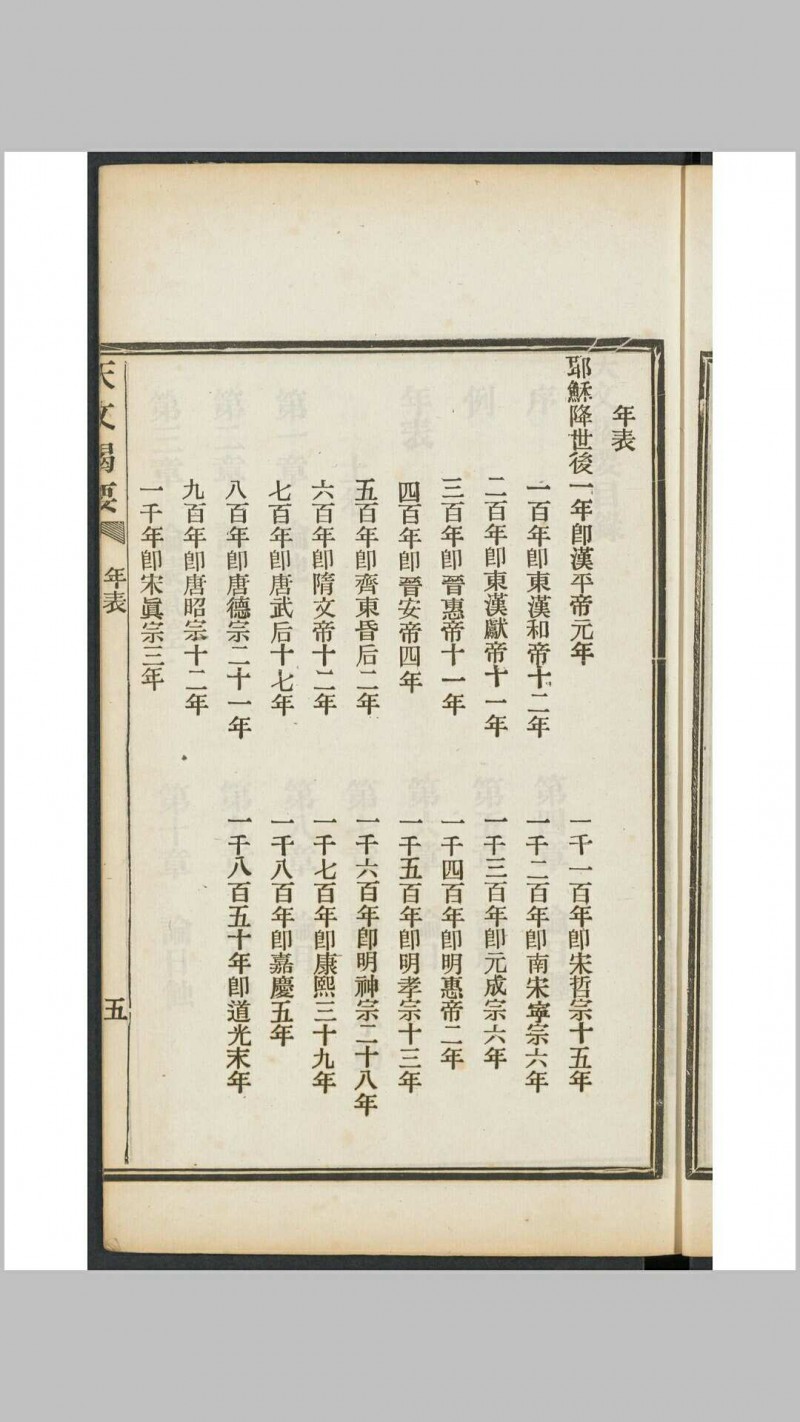 年表
耶穌降世後一年卽漢平帝元年
一百年卽東漢和帝十二年
二百年卽東漢獻帝十一年
三百年卽晉惠帝十一年
四百年卽晉安帝四年
五百年卽齊東昏后二年
六百年卽隋文帝十二年
七百年卽唐武后十七年
八百年卽唐德宗二十一年
九百年卽唐昭宗十二年
一千年卽宋眞宗三年
一千一百年卽宋哲宗十五年
一千二百年卽南宋寧宗六年
一千三百年卽元成宗六年
一千四百年卽明惠帝二年
一千五百年卽明孝宗十三年
一千六百年卽明神宗二十八年
一千七百年卽康熙三十九年
一千八百年卽嘉慶五年
一千八百五十年卽道光末年
天文揭要
年表
五